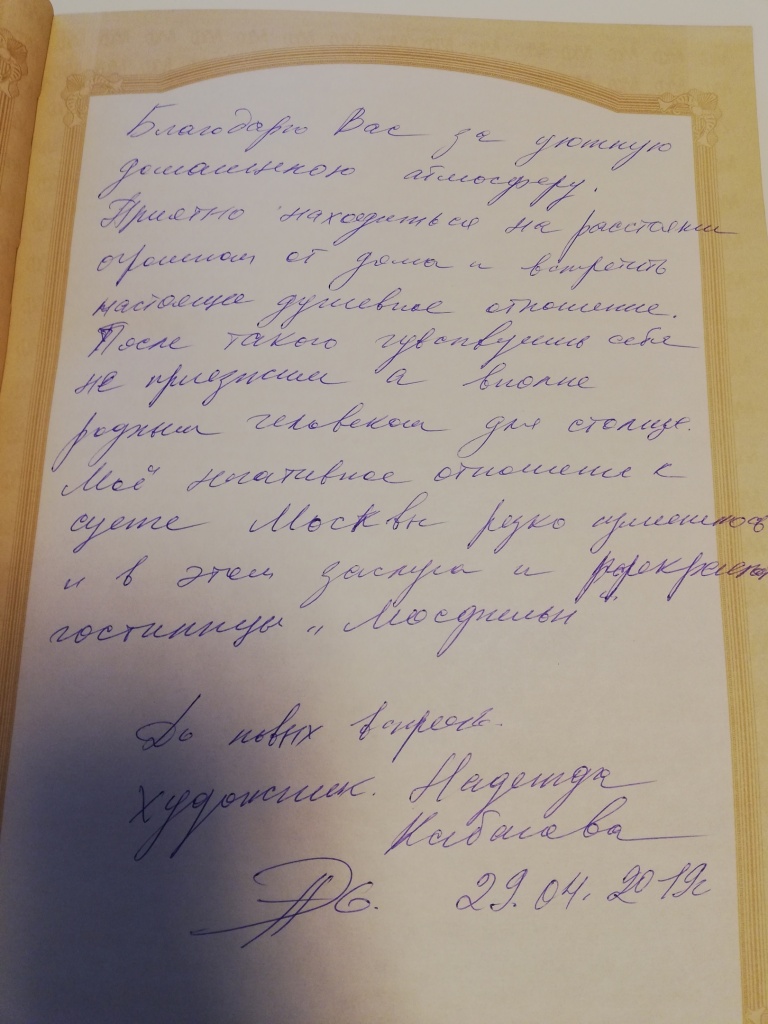 Благодарю Вас за уютную
домашнюю атмосферу.
Приятно находиться на расстоянии
огромном от дома и встретить
настоящее душевное отношение.
После такого чувствуешь себя
не приезжим а вполне
родным человеком для столицы.
Моё негативное отношение к
суете Москвы резко
и в этом заслуга и
гостиницы „Мосфильм"
До новых встреч.
Художник. Надежда
29.04.2019г